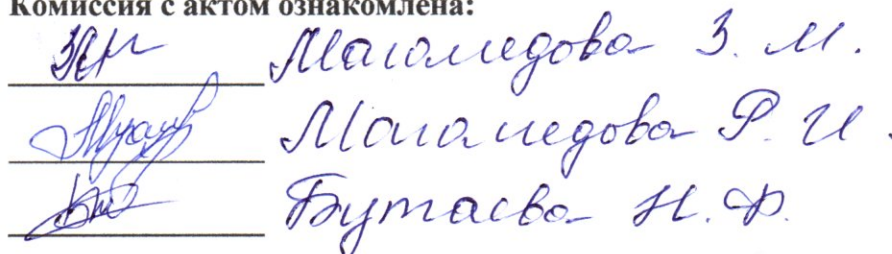 Комиссия с актом ознакомлена:
Магомедова З. М.
Магомедова Р. И.
Бутаева Н. Ф.